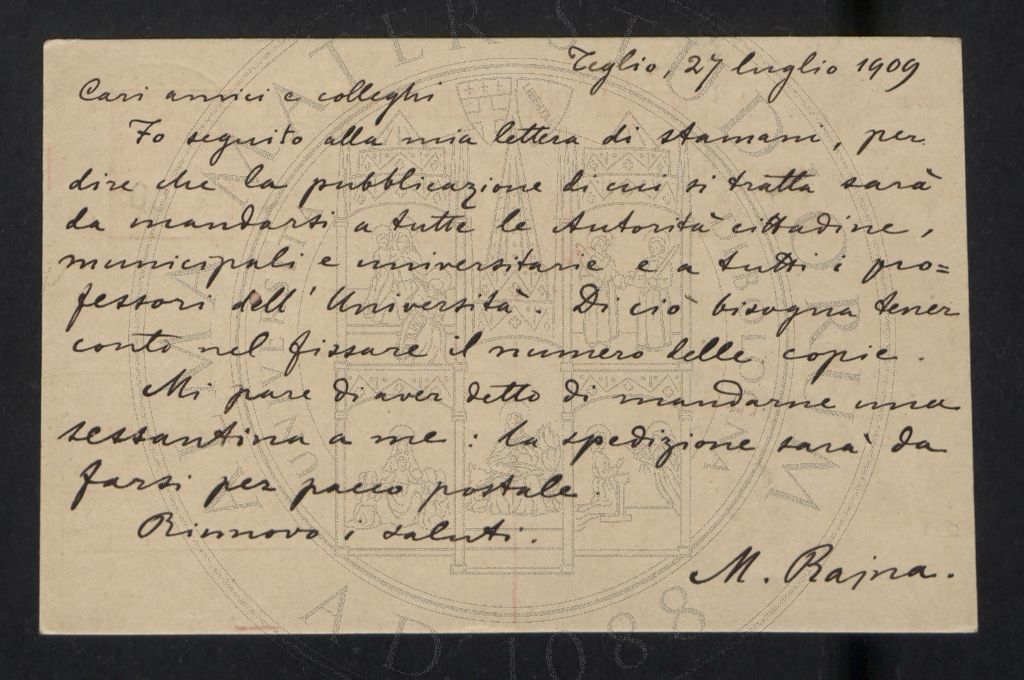 Teglio, 27 luglio 1909
Cari amici e colleghi
Fo seguito alla mia lettera di stamani, per
dire che la pubblicazione di cui si tratta sarà
da mandarsi a tutte le Autorità cittadine,
municipali e universitarie e a tutti i pro=
fessori dell' Università. Di ciò bisogna tener
conto nel fissare il numero delle copie.
Mi pare di aver detto di mandarne una
sessantina a me: la spedizione sarà da
farsi per pacco postale.
Rinnovo i saluti.
M. Rajna.
ALMA MATER STUDIORUM
A.D. 1088